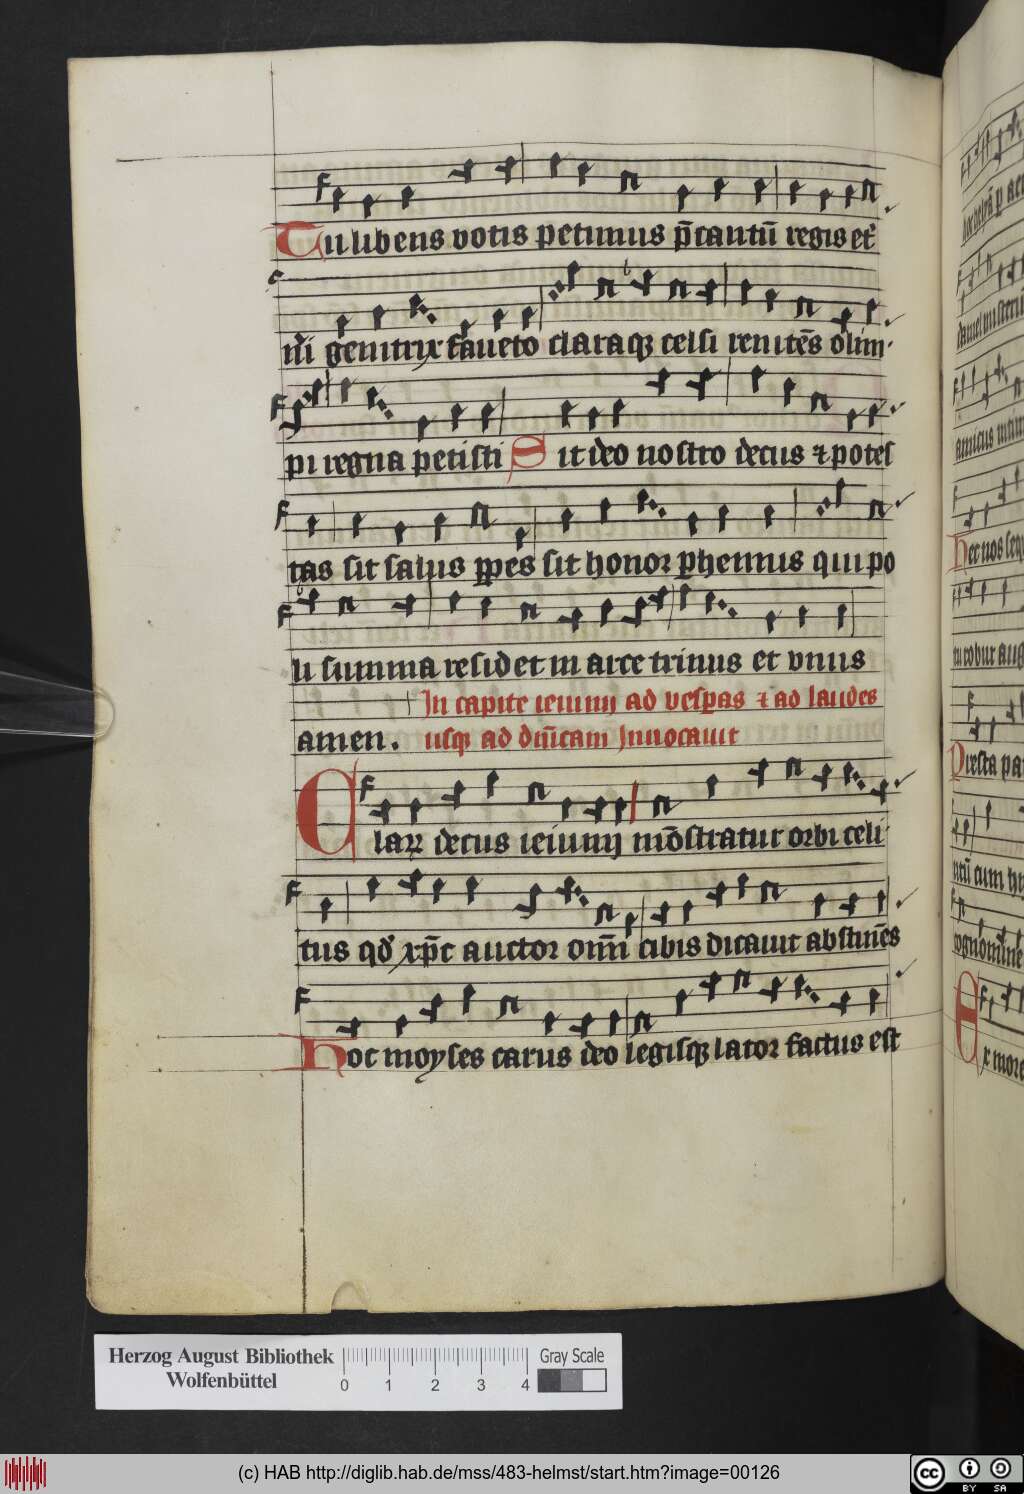 Tu libens votis petimus p̄cantū regis et̉
n̉i genitrix faueto claraqꝫ celsi renitēs olim
pi regna petisti Sit deo nostro decus ⁊ potes
tas sit salus ꝑpes sit honor ꝑhennis qui po
li summa residet in arce trinus et vnus
In capite ieiunij ad vesꝑas ⁊ ad laudes
amen. usqꝫ ad dn̄icam Inuocauit
Clarꝝ decus ieiunij mōstratur orbi celi
tus qd̉ xp̄c auctor om̄i cibis dicauit abstinēs
Hoc moyses carus deo legisqꝫ lator factus est
amicus
ex nos
tu robur aug
ntū cum
cognomine
Ex more
Herzog August Bibliothek
Wolfenbüttel
0 1 2 3 4
Gray Scale
(c) HAB http://diglib.hab.de/mss/483-helmst/start.htm?image=00126
cc BY SA